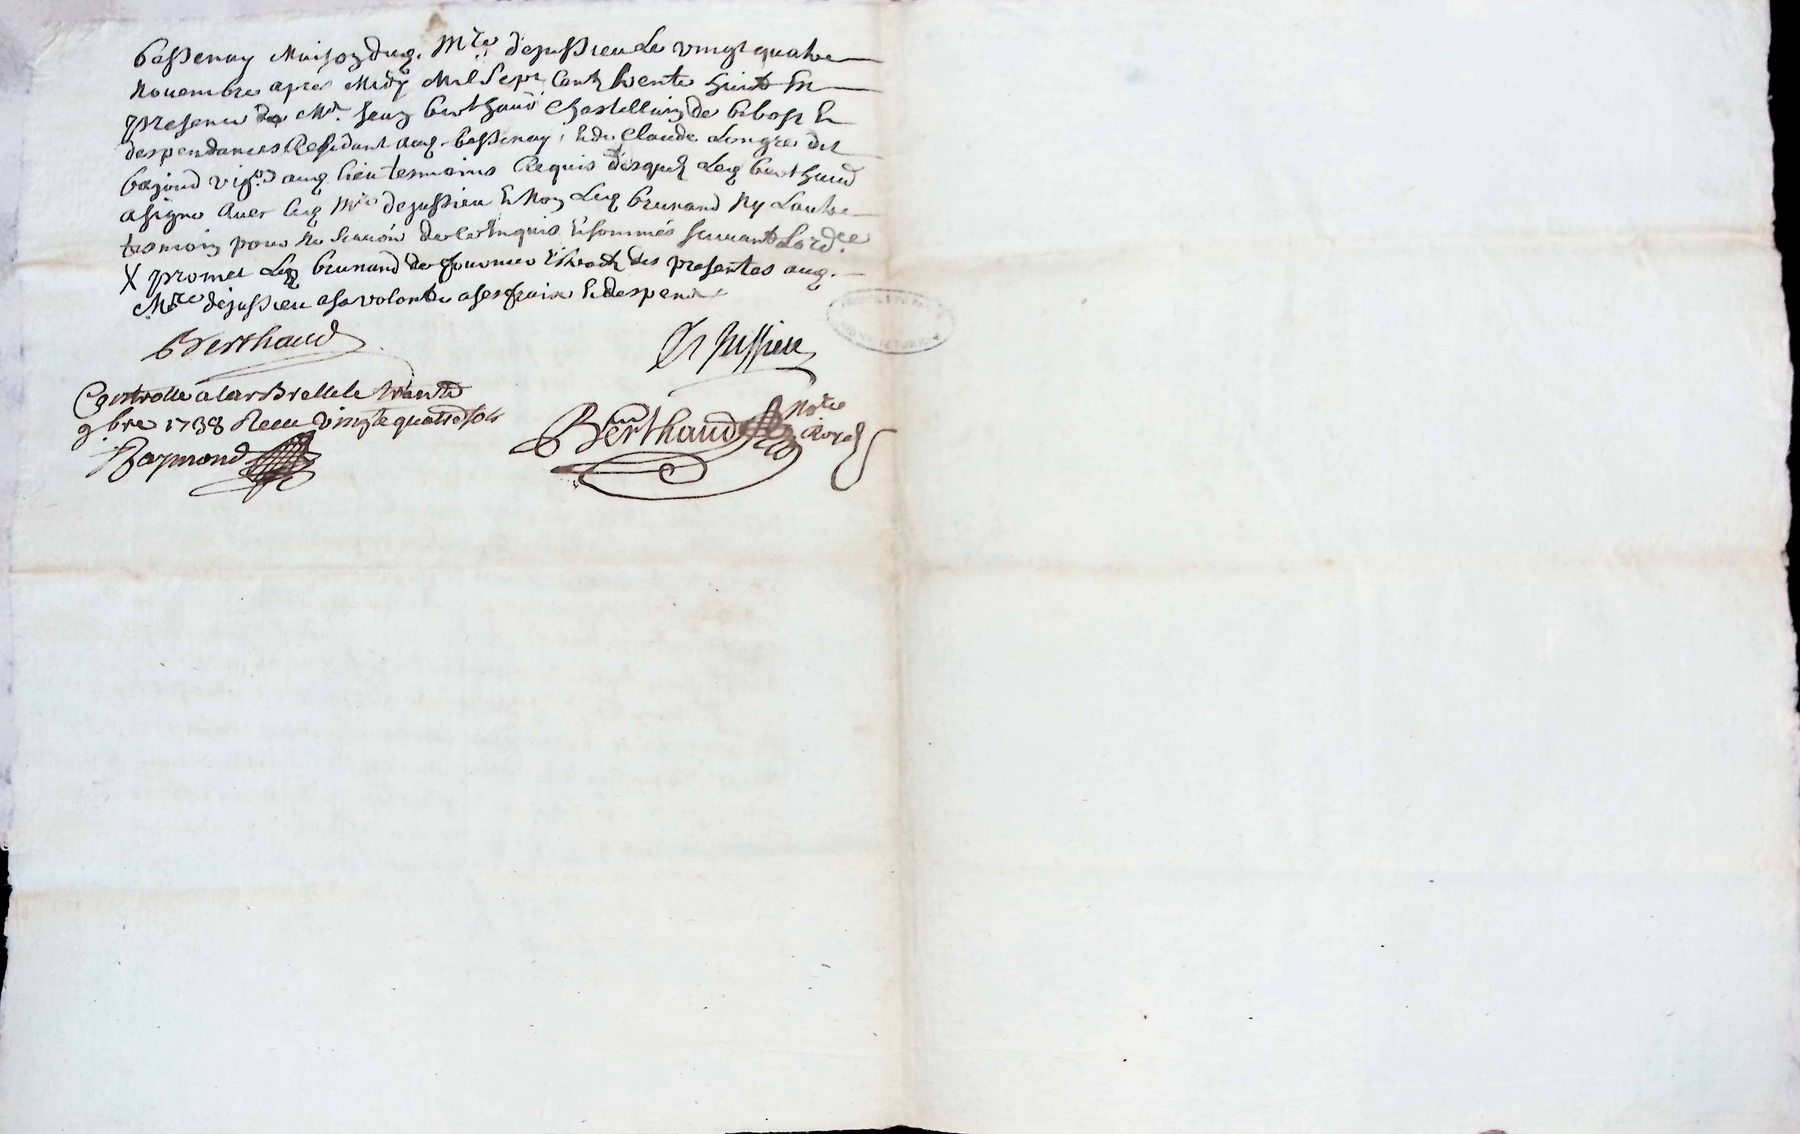 bassenay Maison dud. Mre dejussieu Le vingt quatre
Novembre apres Midy Mil Sept Cent trente huit En
presence de Mr. Jean berthaud Chastellain de bibost Et
despendances Residant aud. bassenay, Et de Claude Longre dit
vign aud lieu tesmoins Requis desquels Led berthaud
a signé Avec led Mre dejussieu Et Non Led brunand Ny Lautre
tesmoin pour ne scavoir de ce Enquis Et sommés suivant Lordce
X promet Led brunand de fournir Extrait des presentes aud.
Mre dejussieu a sa volonté a ses frais Et despens
Berthaud
De Jussieu
Controllé a larbrelle le trente
9.bre 1738 Receu vingt quatre sols
Raymond
Berthaud Nore Royal